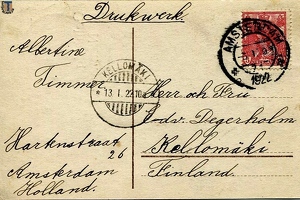 Drukwerk
AMSTERDAM
1922
Albertine
Timmer
Hartenstraat
26
Amsterdam
Holland.
KELLOMÄKI
13. I. 22
Herr och Fru
v. Degerholm
Kellomäki
Finland.